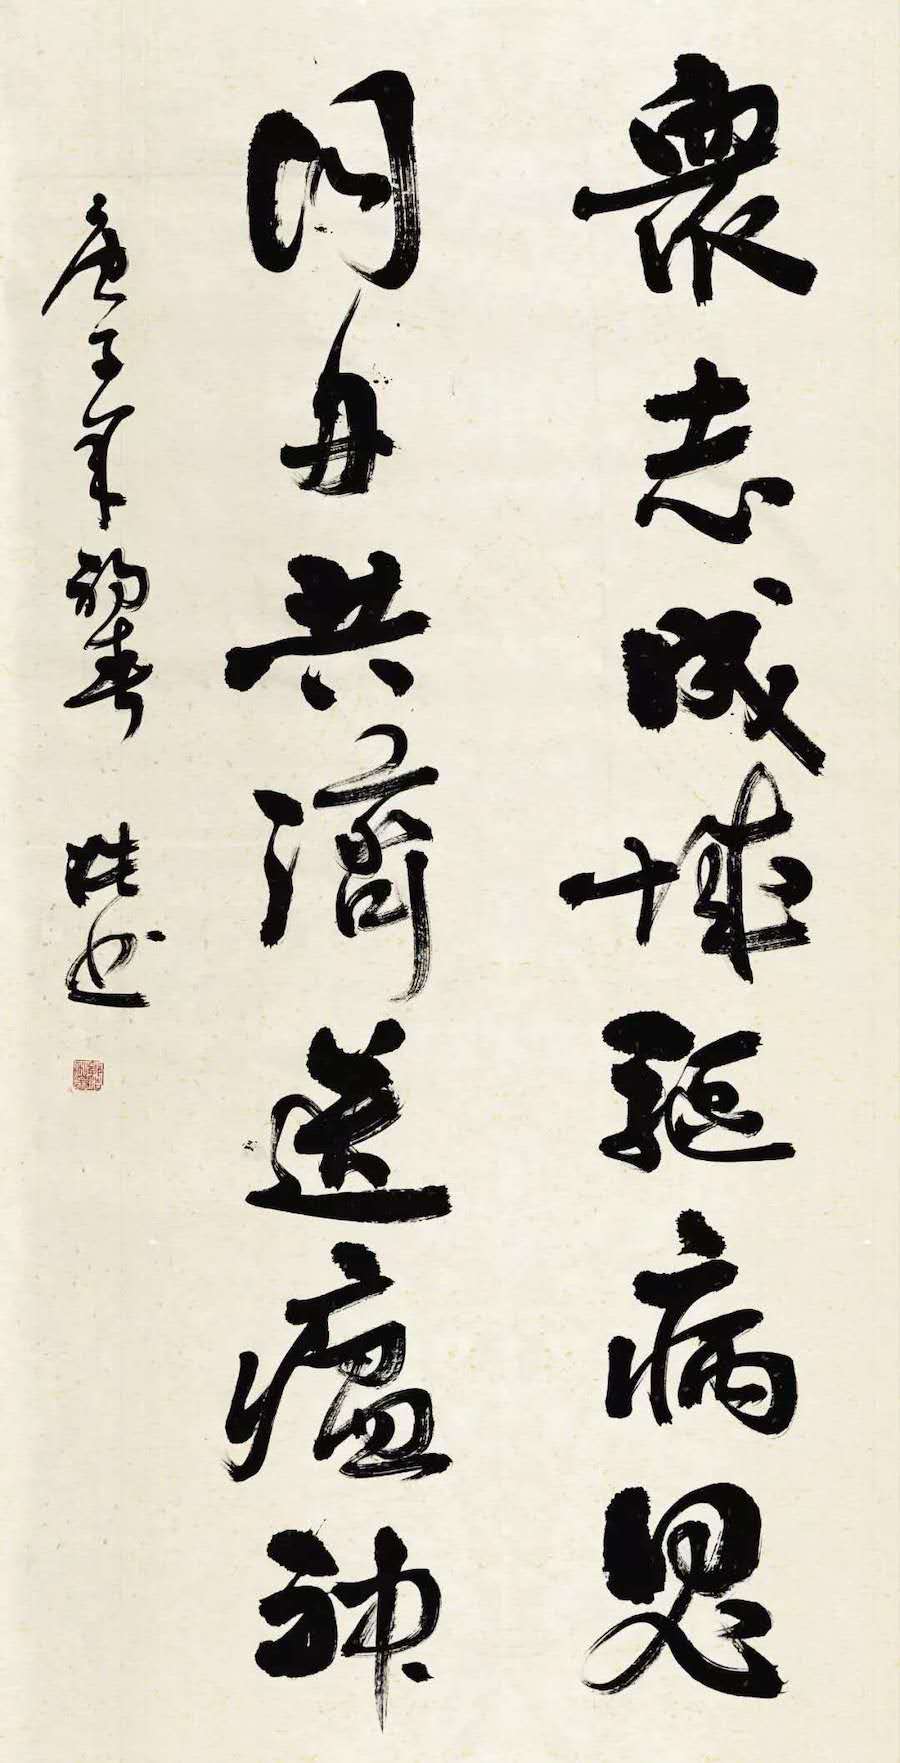 衆志成城驅病鬼
同舟共濟送瘟神
庚子年初春